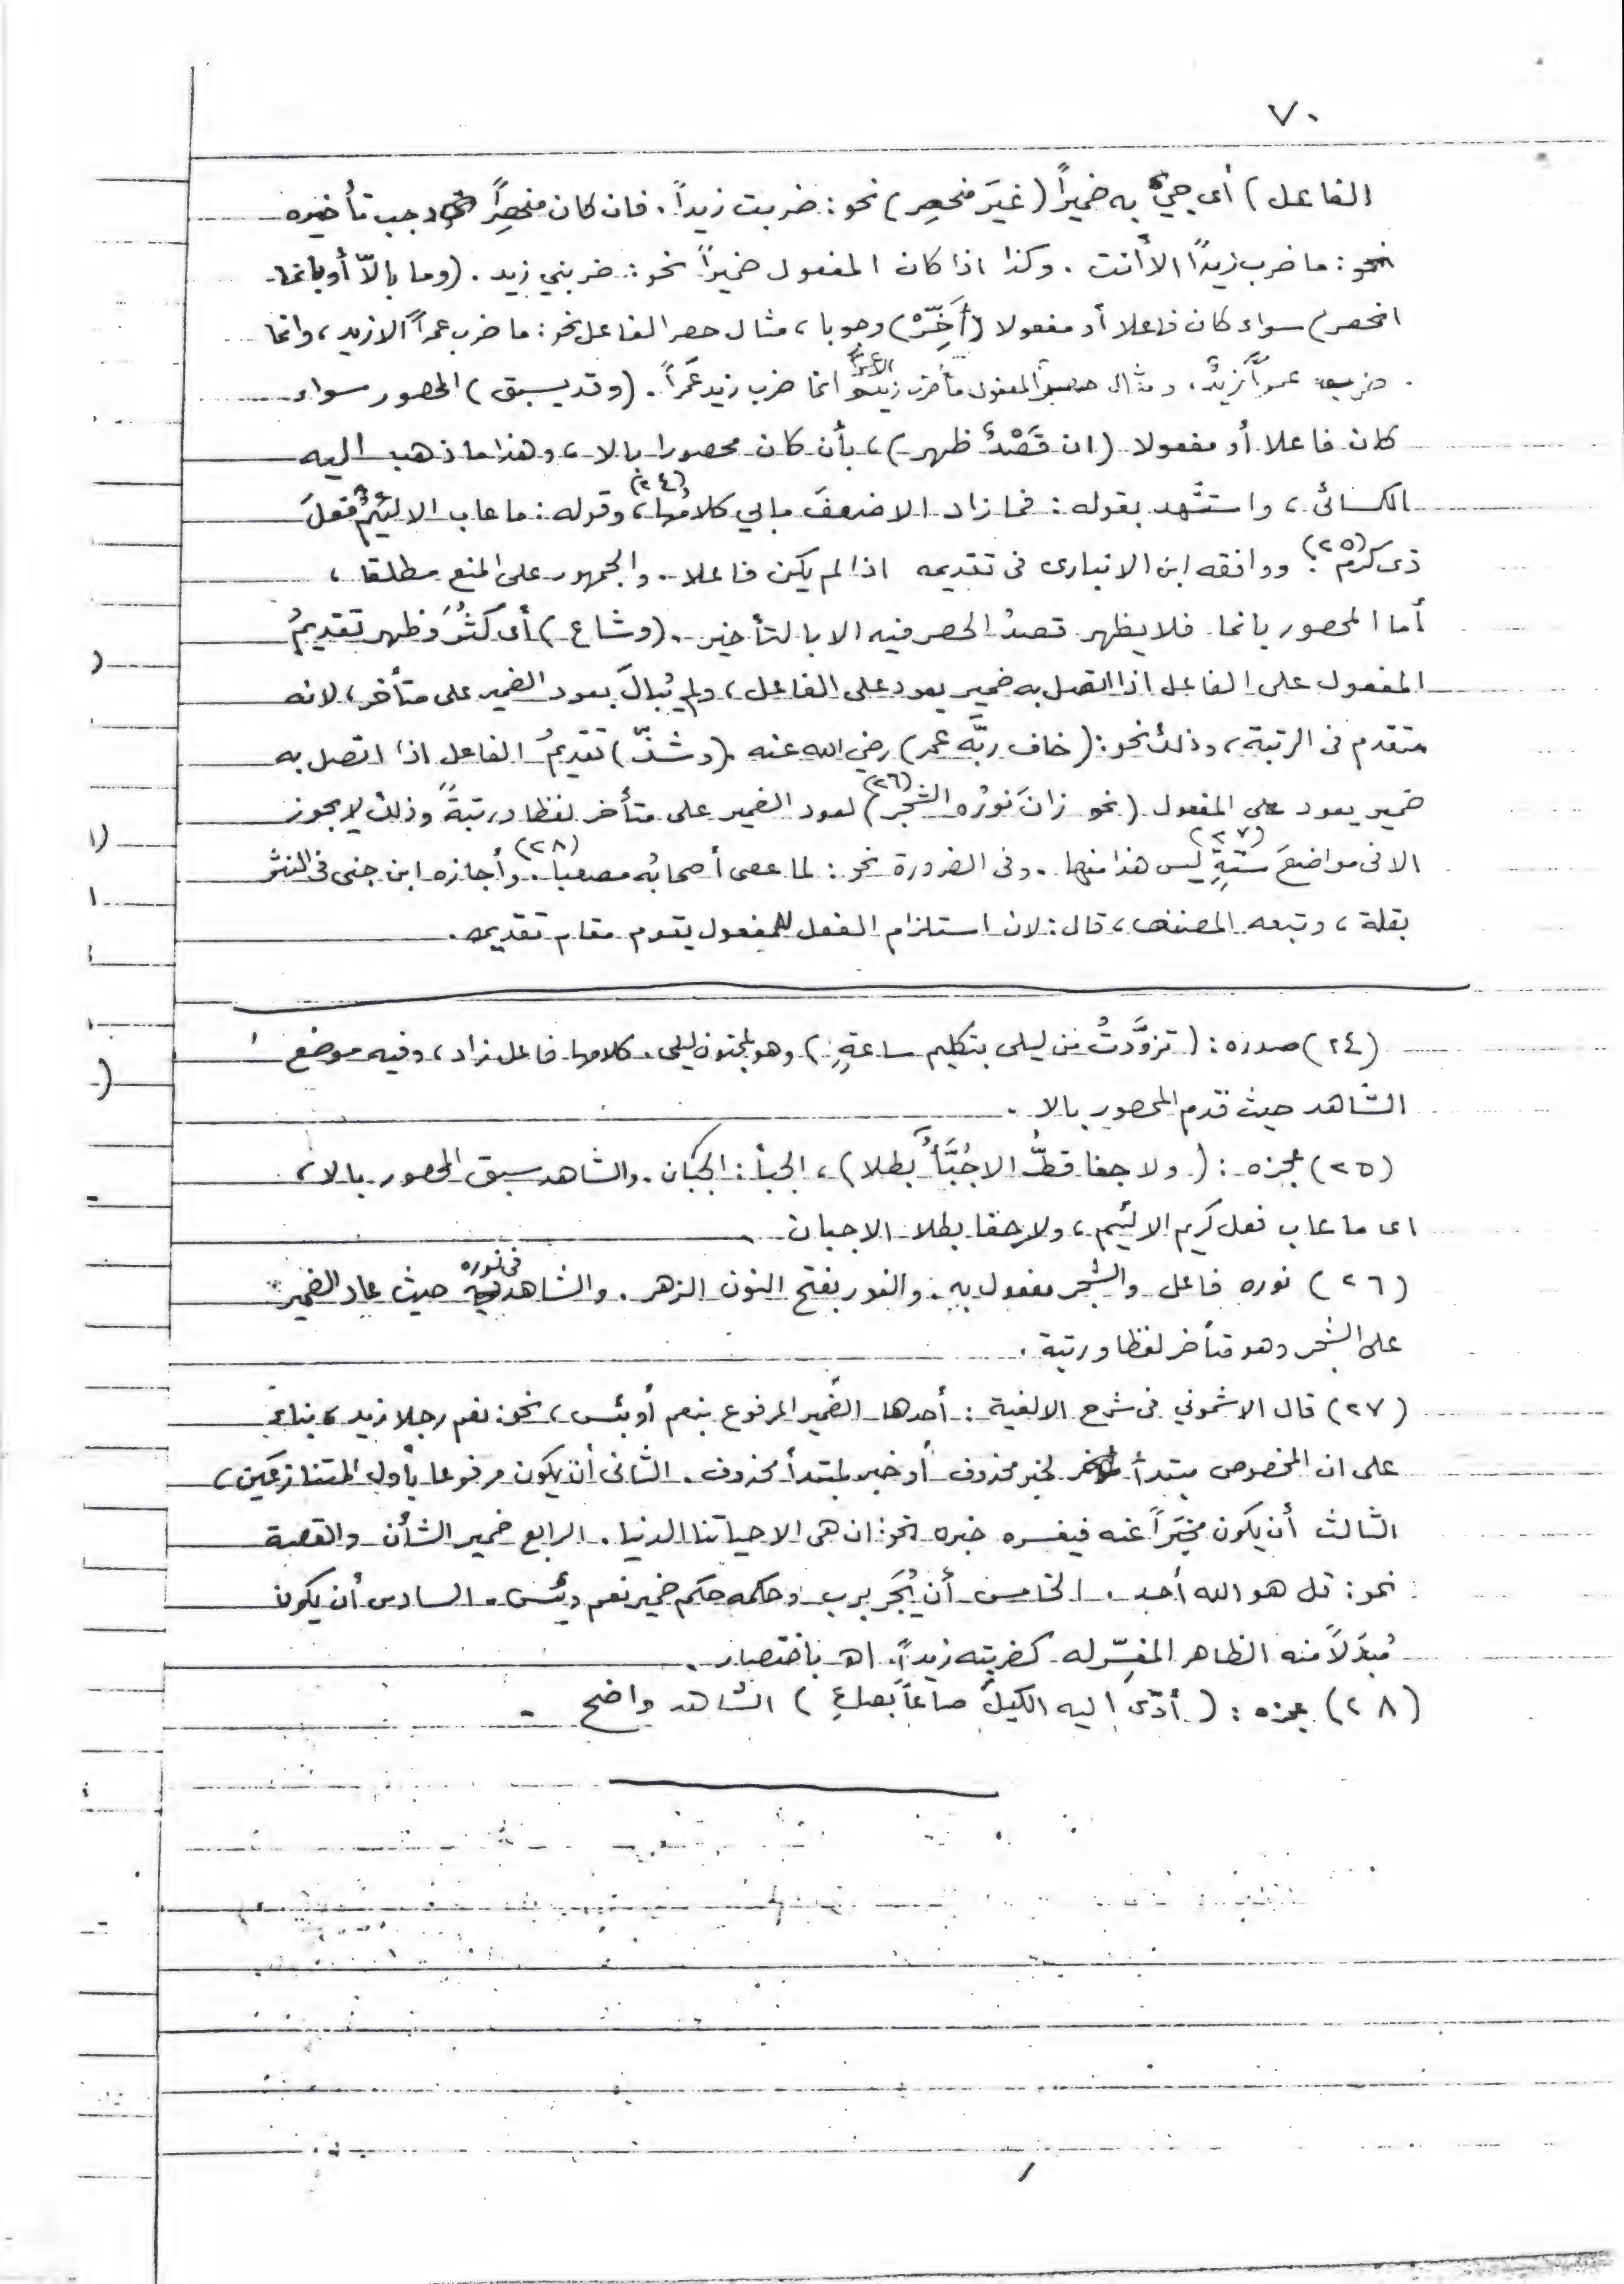 ٧٠
الفاعل) أى جيء به ضميراً (غيرَ منحصِر) نحو: ضربت زيداً. فان كان منحصِراً وجب تأخيره
نحو: ما ضرب زيداً الا أنت. وكذا اذا كان المفعول ضميراً نحو: ضربني زيد. (وما بالاّ أو بانما
انحصر) سواء كان فاعلا أو مفعولا (أَخِّرْه) وجوبا، مثال حصر الفاعل نحو: ما ضرب عمراً الا زيد، وانما
ضرب عمراً زيدٌ، ومثال حصر المفعول ما ضرب زيد الا عمراً انما ضرب زيد عَمراً. (وقد يسبق) المحصور سواء
كان فاعلا أو مفعولا (ان قَصْدٌ ظهر)، بأن كان محصورا بالا، وهذا ما ذهب اليه
الكسائى، واستشهد بقوله: فما زاد الا ضعفَ مابي كلامُها(٢٤)، وقوله: ما عاب الا لئيمٌ فعلَ
ذى كرم(٢٥). ووافقه ابن الانبارى فى تقديمه اذا لم يكن فاعلا. والجمهور على المنع مطلقا،
أما المحصور بانما فلا يظهر قصدُ الحصر فيه الا بالتأخير. (وشاع) أى كَثُرَ وظهر تقديمُ
المفعول على الفاعل اذا اتصل به ضمير يعود على الفاعل، ولم يُبالَ بعود الضمير على متأخر، لانه
متقدم فى الرتبة، وذلك نحو: (خاف ربَّه عمر) رضي الله عنه. (وشذّ) تقديمُ الفاعل اذا اتصل به
ضمير يعود على المفعول (نحو زانَ نَورُه الشجر)(٢٦) لعود الضمير على متأخر لفظا ورتبةً وذلك لا يجوز
الا فى مواضعَ ستةٍ(٢٧) ليس هذا منها. وفى الضرورة نحو: لما عصى أصحابُه مصعبا(٢٨). وأجازه ابن جنى فى النثر
بقلة، وتبعه المصنف، قال: لان استلزام الفعل للمفعول يقوم مقام تقديمه.
(٢٤) صدره: (تزوَّدتُ من ليلى بتكليم ساعةٍ) وهو لمجنون ليلى. كلامها فاعل زاد، وفيه موضع
الشاهد حيث قدم المحصور بالا.
(٢٥) عجزه: (ولا جفا قطُّ الا جُبَّأٌ بَطلا)، الجبأ: الجَبَان. والشاهد سبق المحصور بالا،
اى ما عاب فعل كريم الا لئيم، ولا جفا بطلا الا جبان.
(٢٦) نوره فاعل والشجر مفعول به. والنور بفتح النون الزهر. والشاهد فى نوره حيث عاد الضمير
على الشجر وهو متأخر لفظا ورتبة.
(٢٧) قال الاشموني فى شرح الالفية: أحدها الضمير المرفوع بنعم أو بئس، نحو: نعم رجلا زيد، بناء
على ان المخصوص مبتدأ لخبر محذوف أو خبر لمبتدأ محذوف. الثانى أن يكون مرفوعا بأول المتنازعَين،
الثالث أن يكون مخبَراً عنه فيفسره خبره نحو: ان هى الا حياتنا الدنيا. الرابع ضمير الشأن والقصة
نحو: قل هو الله أحد. الخامس أن يُجَر برب وحكمه حكم ضمير نعم وبئس. السادس أن يكون
مُبدَلاً منه الظاهر المفسِّر له كضربته زيداً. اهـ باختصار.
(٢٨) عجزه: (أدّى اليه الكيلَ صاعاً بصاعِ) الشاهد واضح